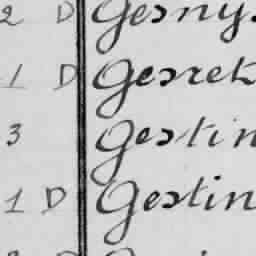 2 D Gesny
1 D Gesret
3 Gestin
1 D Gestin